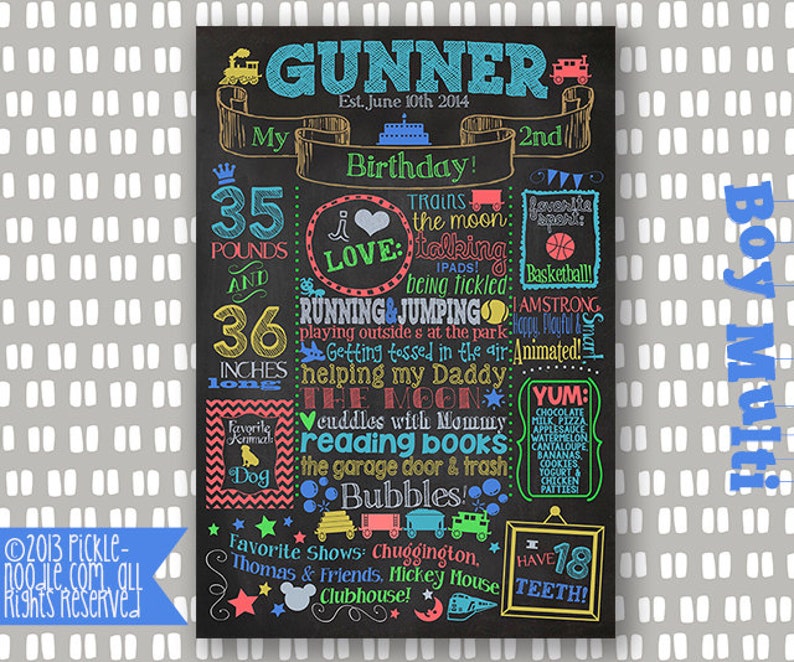 GUNNER
Est. June 10th 2014
My 2nd
Birthday!
35
POUNDS
AND
36
INCHES
long
Favorite
Animal:
Dog
i
LOVE:
TRAINS
the moon
talking
IPADS!
being tickled
RUNNING & JUMPING
playing outside & at the park
Getting tossed in the air
helping my Daddy
THE MOON
cuddles with Mommy
reading books
the garage door & trash
Bubbles!
favorite
sport:
Basketball!
I AM STRONG
Happy, Playful &
Smart
Animated!
YUM:
CHOCOLATE
MILK, PIZZA,
APPLESAUCE,
WATERMELON,
CANTALOUPE,
BANANAS,
COOKIES,
YOGURT &
CHICKEN
PATTIES!
Favorite Shows: Chuggington,
Thomas & Friends, Mickey Mouse
Clubhouse!
I
HAVE 18
TEETH!
Boy Multi
©2013 Pickle-
noodle.com, all
rights reserved